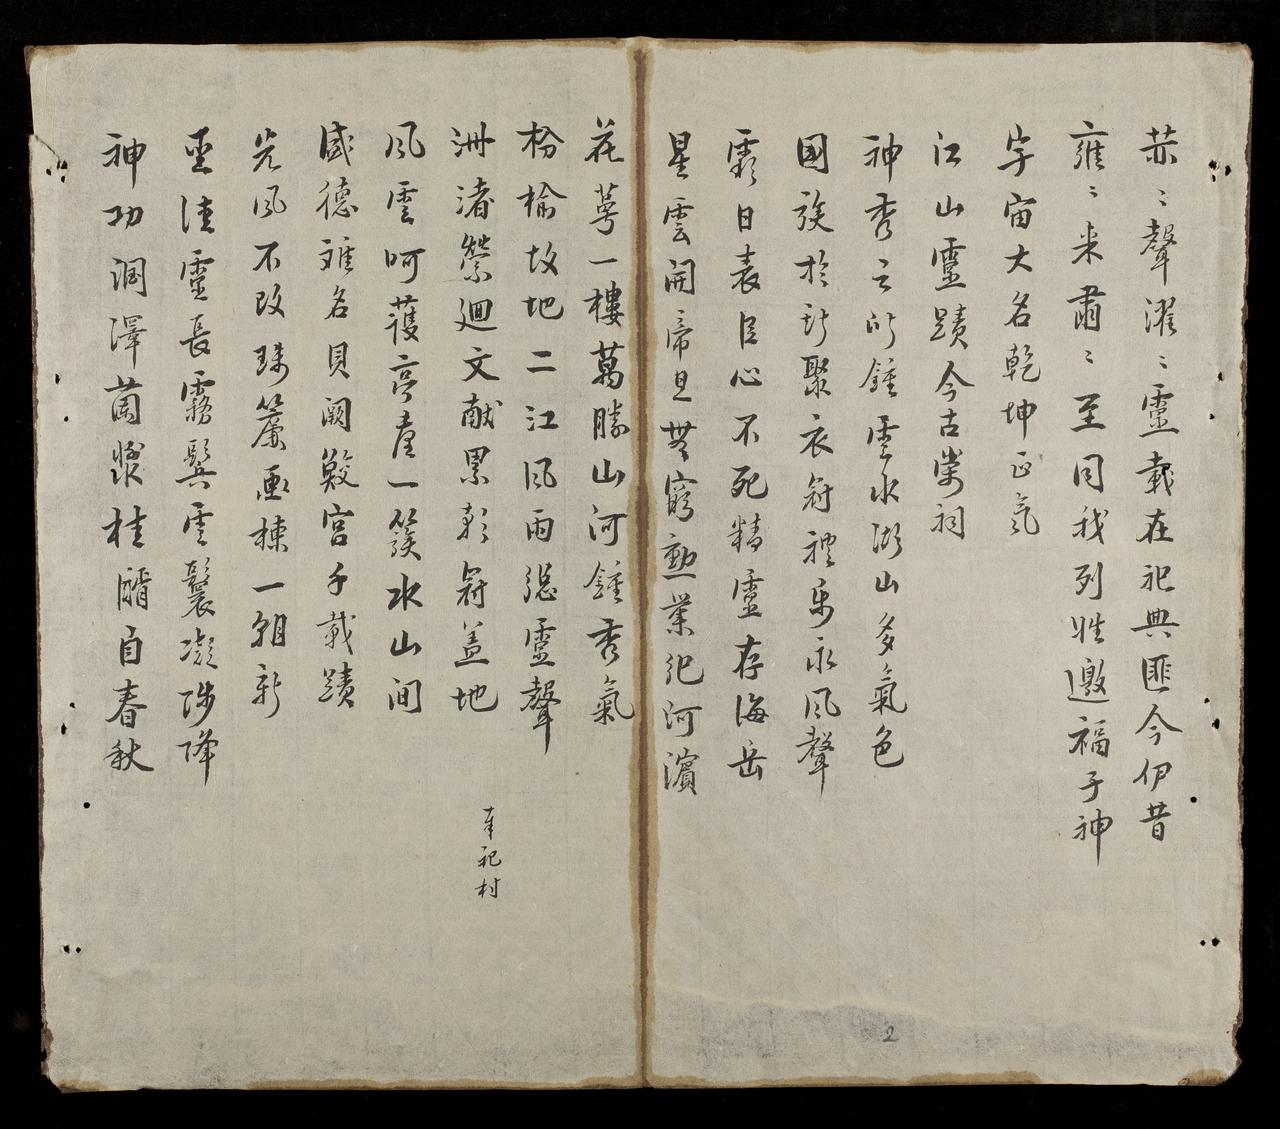 赫〻聲濯〻靈載在祀典匪今伊昔
雍〻来肅〻至同我列姓邀福于神
宇宙大名乾坤正氣
江山靈蹟今古崇祠
神秀之所鍾雲水湖山多氣色
國族於斯聚衣冠禮樂永風聲
霽日表臣心不死精靈存海岳
星雲開帝旦無窮勳業紀河濱
花萼一樓萬勝山河鍾秀氣
枌榆故地二江風雨總靈聲
洲渚縈廻文献累朝冠盖地 奉祀村
風雲呵護亭臺一簇水山间
盛德难名貝阙鮫宮千載蹟
先風不改珠簾画棟一朝新
聖法靈長霧鬓雲鬟凝陟降
神功润澤蘭漿桂醑自春秋
2